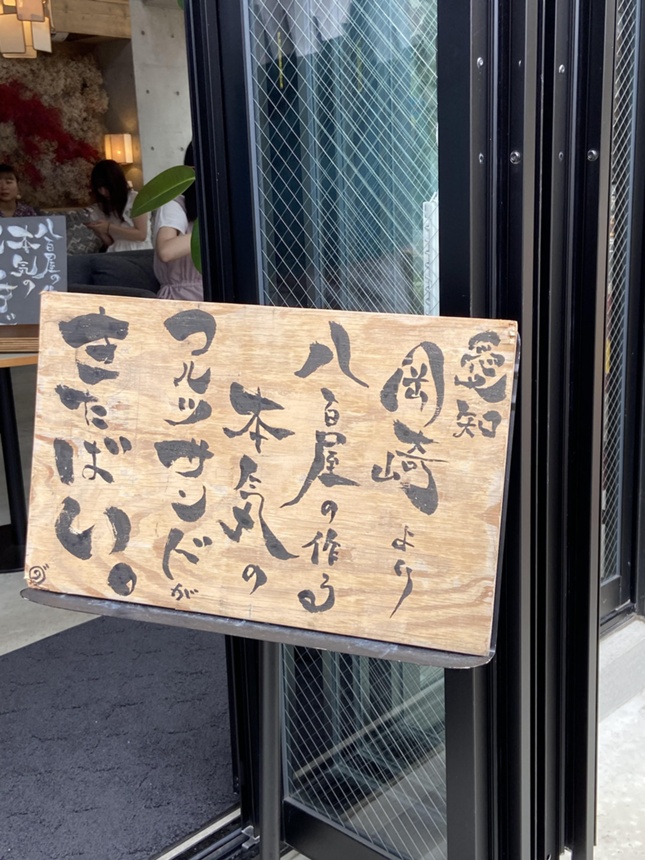 愛知
岡崎より
八百屋の作る
本気の
フルツサンドが
きたばい。
八百屋の
本気の